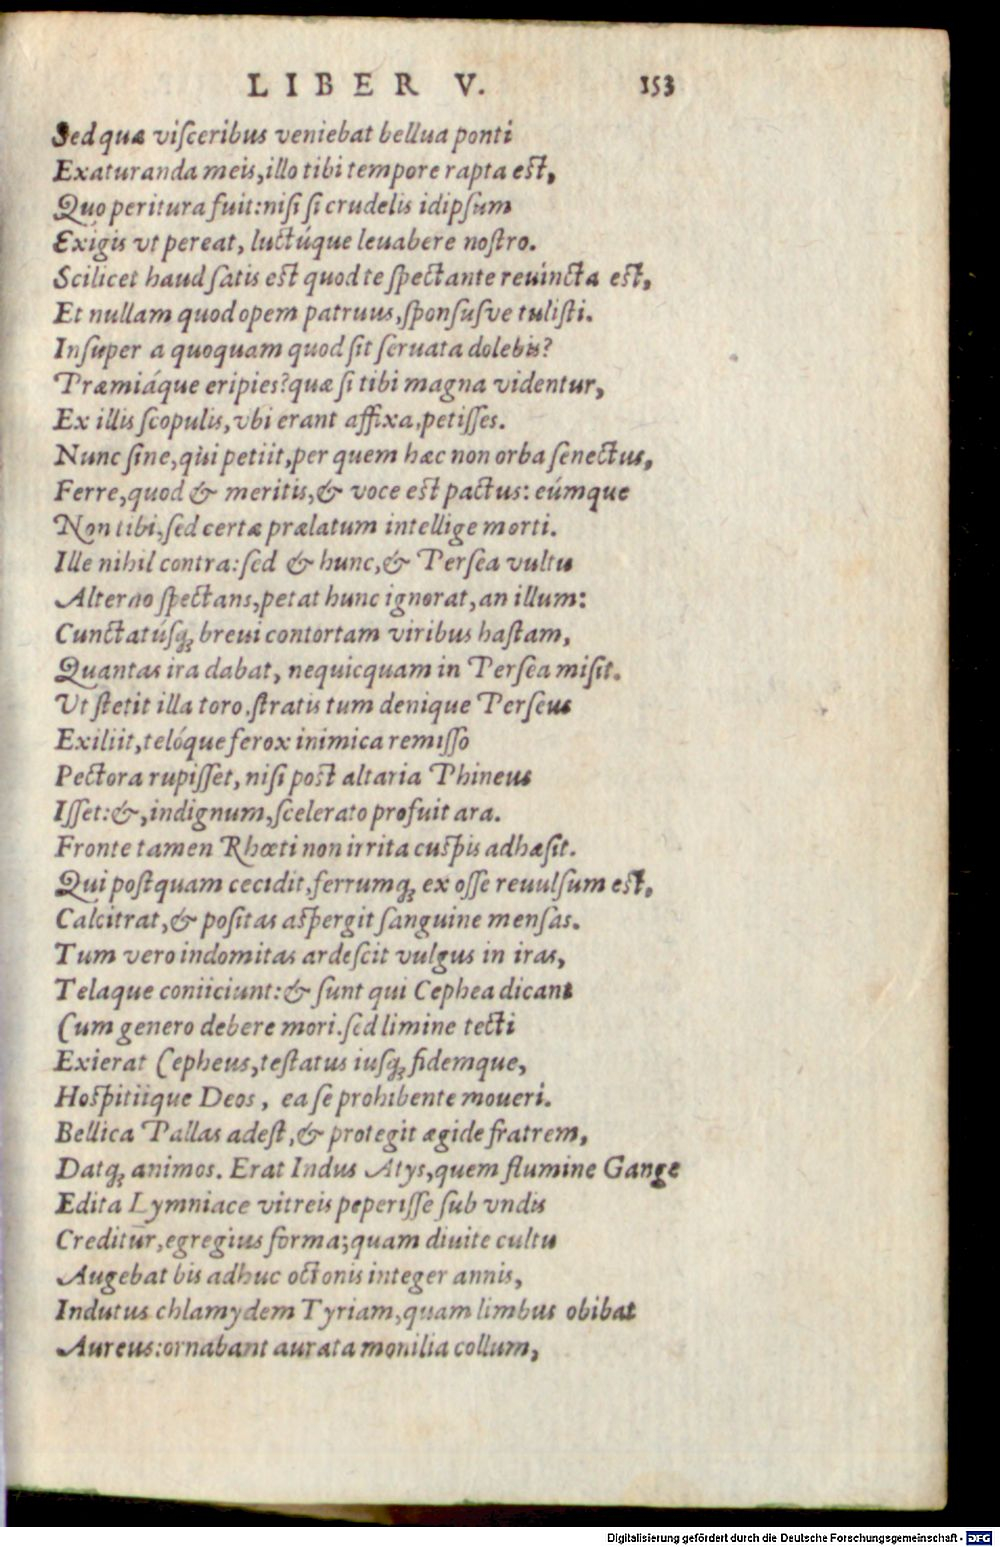 LIBER V. 153
Sed quæ visceribus veniebat bellua ponti
Exaturanda meis, illo tibi tempore rapta est,
Quo peritura fuit: nisi si crudelis id ipsum
Exigis vt pereat, luctúque leuabere nostro.
Scilicet haud satis est quod te spectante reuincta est,
Et nullam quod opem patruus, sponsusve tulisti.
Insuper a quoquam quod sit seruata dolebis?
Præmiáque eripies? quæ si tibi magna videntur,
Ex illis scopulis, vbi erant affixa, petisses.
Nunc sine, qui petiit, per quem hæc non orba senectus,
Ferre, quod & meritis, & voce est pactus: eúmque
Non tibi, sed certæ prælatum intellige morti.
Ille nihil contra: sed & hunc, & Persea vultu
Alterno spectans, petat hunc ignorat, an illum:
Cunctatúsq; breui contortam viribus hastam,
Quantas ira dabat, nequicquam in Persea misit.
Vt stetit illa toro. stratis tum denique Perseus
Exiliit, telóque ferox inimica remisso
Pectora rupisset, nisi post altaria Phineus
Isset: &, indignum, scelerato profuit ara.
Fronte tamen Rhœti non irrita cuspis adhæsit.
Qui postquam cecidit, ferrumq; ex osse reuulsum est,
Calcitrat, & positas aspergit sanguine mensas.
Tum vero indomitas ardescit vulgus in iras,
Telaque coniiciunt: & sunt qui Cephea dicant
Cum genero debere mori. sed limine tecti
Exierat Cepheus, testatus iusq; fidemque,
Hospitiique Deos, ea se prohibente moueri.
Bellica Pallas adest, & protegit ægide fratrem,
Datq; animos. Erat Indus Atys, quem flumine Gange
Edita Lymniace vitreis peperisse sub vndis
Creditur, egregius forma; quam diuite cultu
Augebat bis adhuc octonis integer annis,
Indutus chlamydem Tyriam, quam limbus obibat
Aureus: ornabant aurata monilia collum,
Digitalisierung gefördert durch die Deutsche Forschungsgemeinschaft - DFG